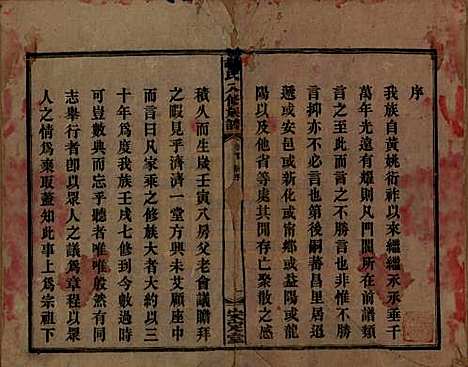 序
我族自黃姚衍祚以來繼繼承承垂千
萬年光遠有燿則凡門閭所在前譜類
言之至此而言之不勝言也非惟不勝
言抑亦不言也第後嗣蕃昌里居
遞遷或安邑或新化或甯鄉或益陽或龍
陽以及他省等處其間存亡聚散之感
積久而生歲壬寅八房父老會議贈拜
之暇見乎濟濟一堂方興未艾顧座中
而言曰凡家乘之修族大者大約以三
十年爲度我族壬戌七修到今數過時
可豈敷典而忘乎聽者唯唯般然有同
志舉行者卽以眾人之議爲章程以眾
人之情爲棄取蓋知此事上爲宗祖下